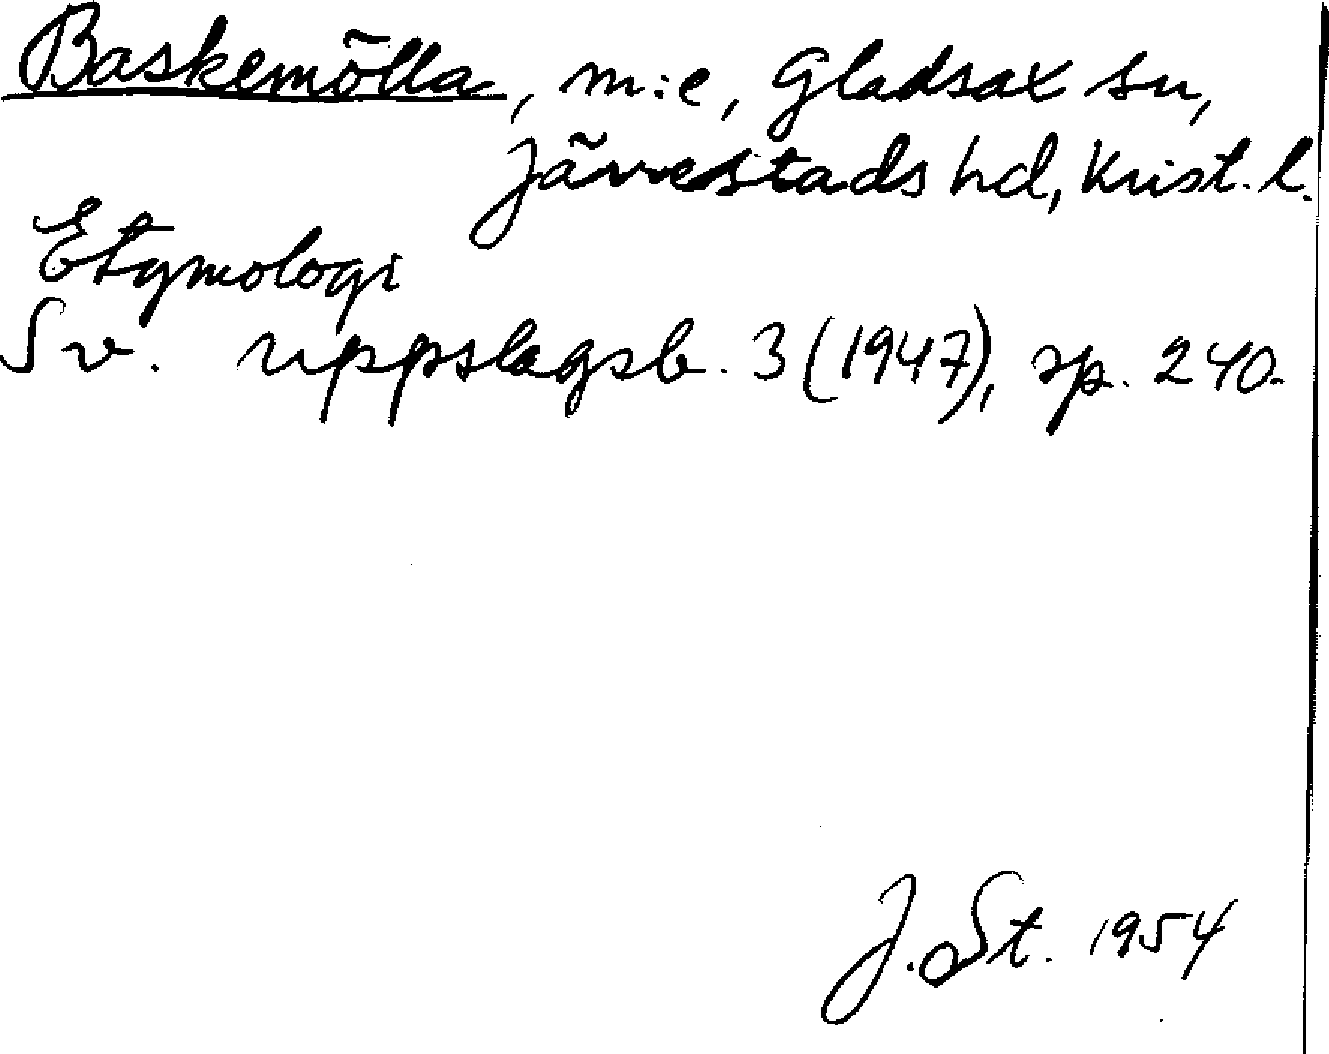 Baskemölla, m:e, Gladsax sn,
Järrestads hd, Krist. l.
Etymologi
Sv. uppslagsb. 3 (1947), sp. 240.
J. St. 1954